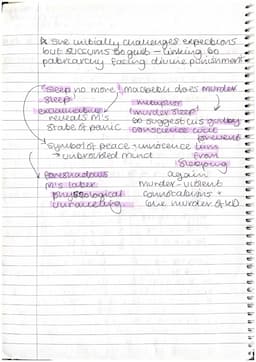 * she initially challenges expections
but succums to guilt - linking to
patriarchy facing divine punishment
"sleep no more! macbeth does murder
sleep"
exclamative
reveals M's
state of panic
metaphor
'murder sleep'
to suggest his guilty
conscience will
prevent
him
from
sleeping
again
symbol of peace + innocence
→ unbroubled mind
foreshadows
M's later
physcological
unraveling
murder - violent
connotations +
the murder of KD